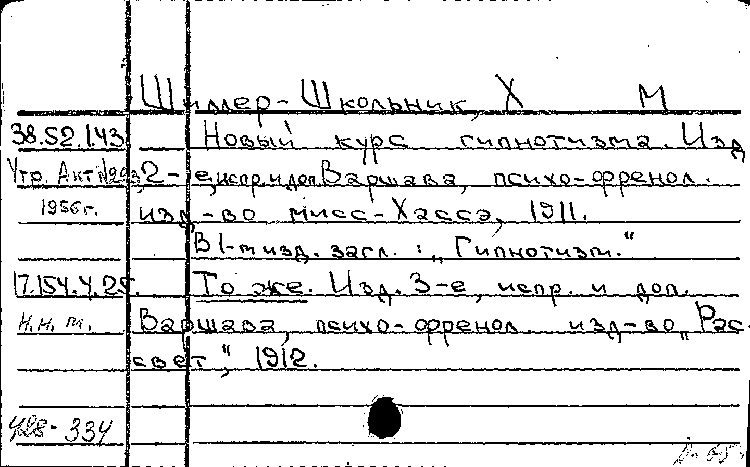 Шиллер-Школьник, Х М
38.52.143 Новый курс гипнотизма. Изд
Утр. Акт 2-е, испр. и доп. Варшава, психо-френол.
1956г. изд-во мисс-Хассэ, 1911.
В 1-м изд. загл.: „Гипнотизм."
17.154.4.25. То же. Изд. 3-е, испр. и доп.
Н.н.т. Варшава, психо-френол. изд-во „Рас-
свет", 1912.
428-334